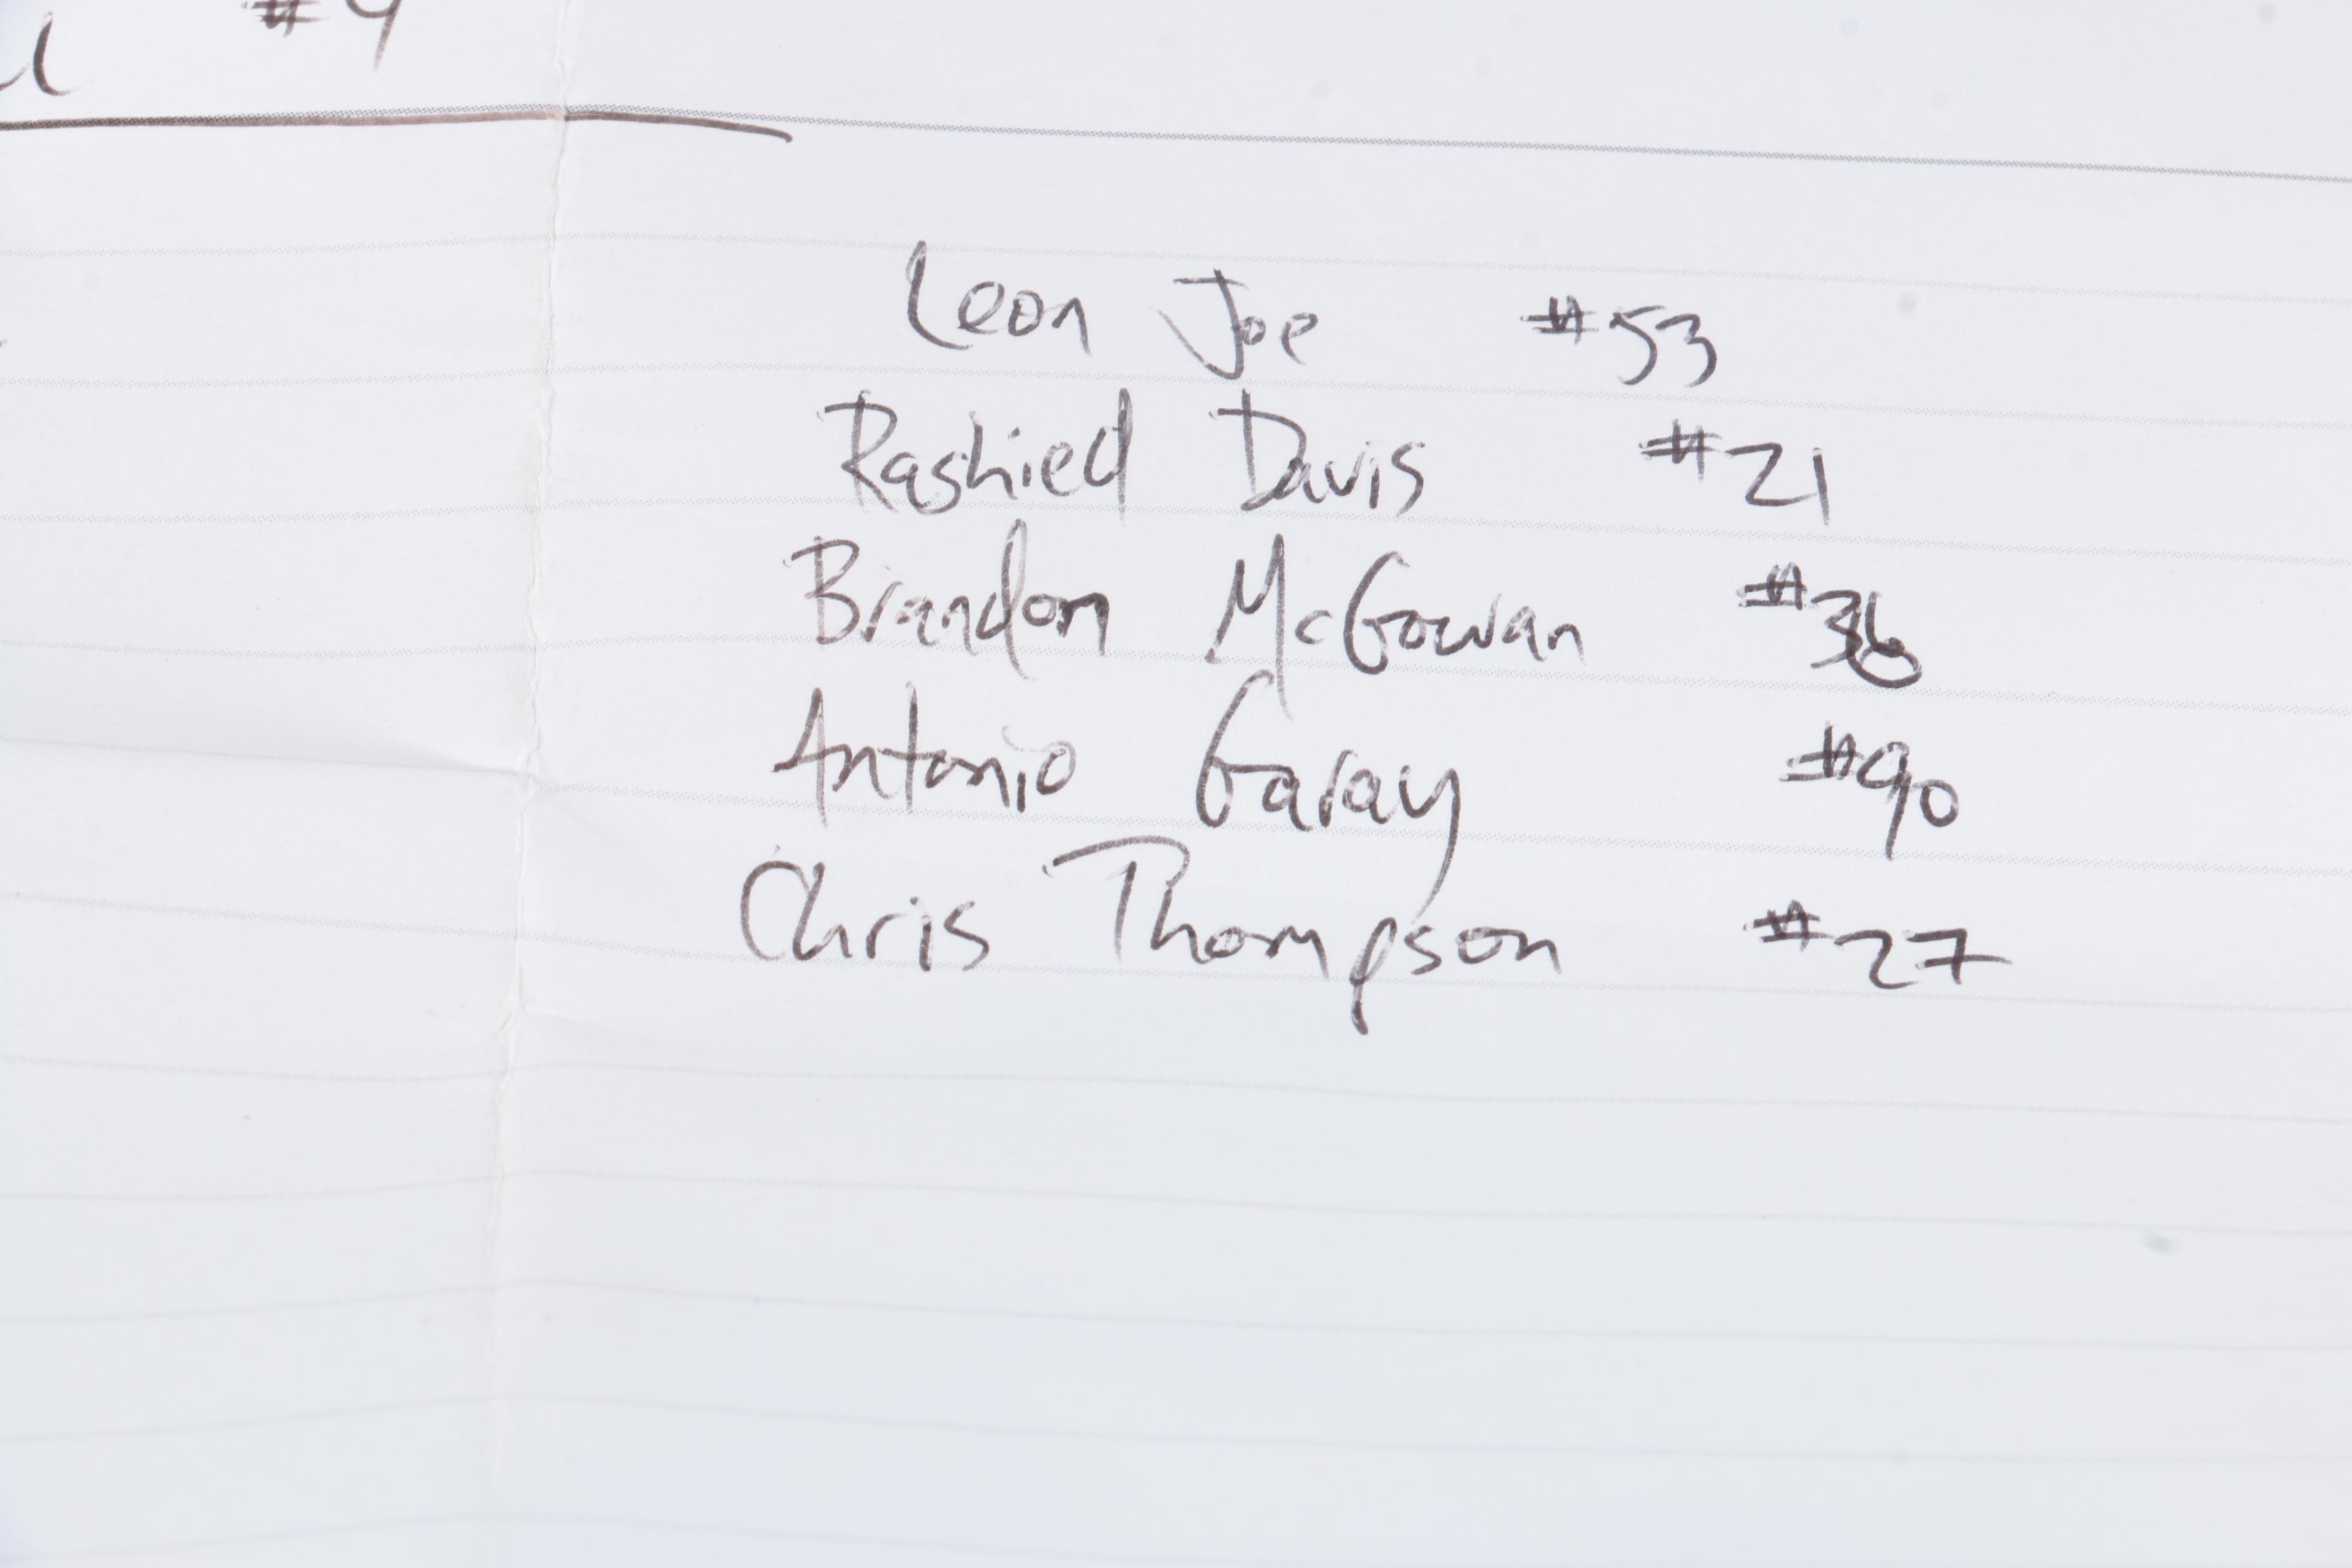 #9
Leon Joe #53
Rashied Davis #21
Brandon McGowan #36
Antonio Garay #90
Chris Thompson #27